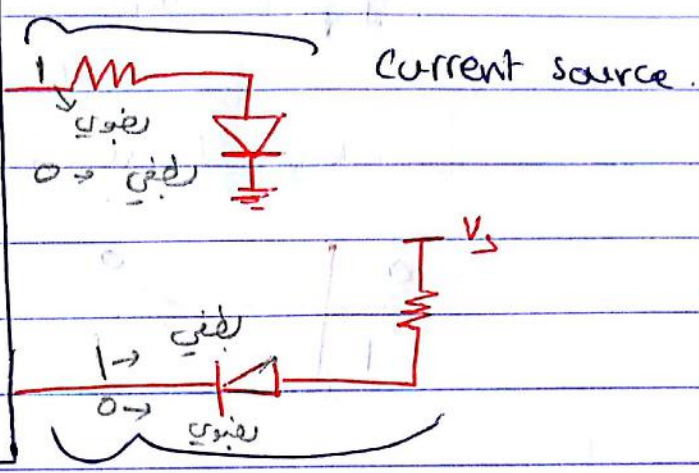 Current source.
1
بضوي
0 → بطفي
Vs
بطفي
1 →
0 →
بضوي